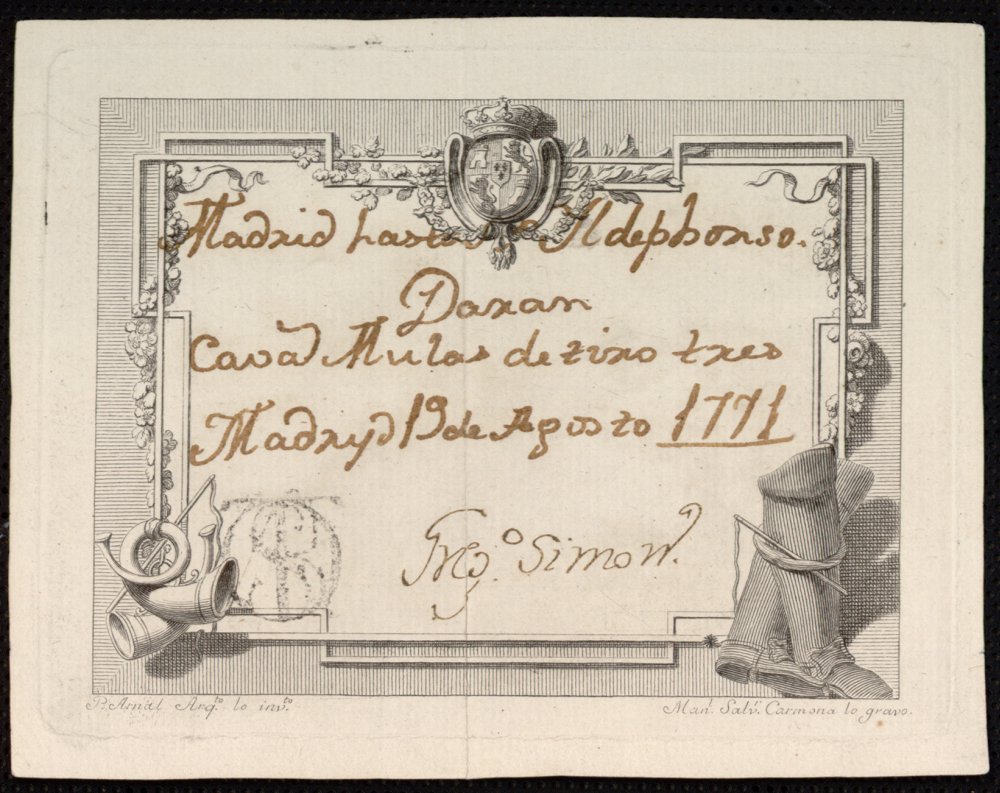 Madrid hasta Sn Ildephonso.
Daran
Cavad Mulas de tiro tres
Madryd 19 de Agosto 1771
Greg.º Simon.
P. Arnal Arq.to lo inv.to
Man.l Salv.r Carmona lo gravo.